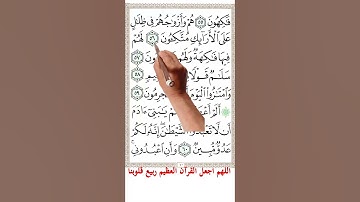 فَٰكِهُونَ ٥٥ هُمْ وَأَزْوَٰجُهُمْ فِى ظِلَٰلٍ
عَلَى ٱلْأَرَآئِكِ مُتَّكِـُٔونَ ٥٦ لَهُمْ
فِيهَا فَٰكِهَةٌ وَلَهُم ٥٧
سَلَٰمٌ قَوْلًا ٥٨
وَٱمْتَٰزُوا۟ ٱلْيَوْمَ ٥٩
يَٰبَنِىٓ ءَادَمَ
أَن لَّا تَعْبُدُوا۟ ٱلشَّيْطَٰنَ إِنَّهُۥ لَكُمْ
عَدُوٌّ مُّبِينٌ ٦٠ وَأَنِ ٱعْبُدُونِى
اللهم اجعل القرآن العظيم ربيع قلوبنا